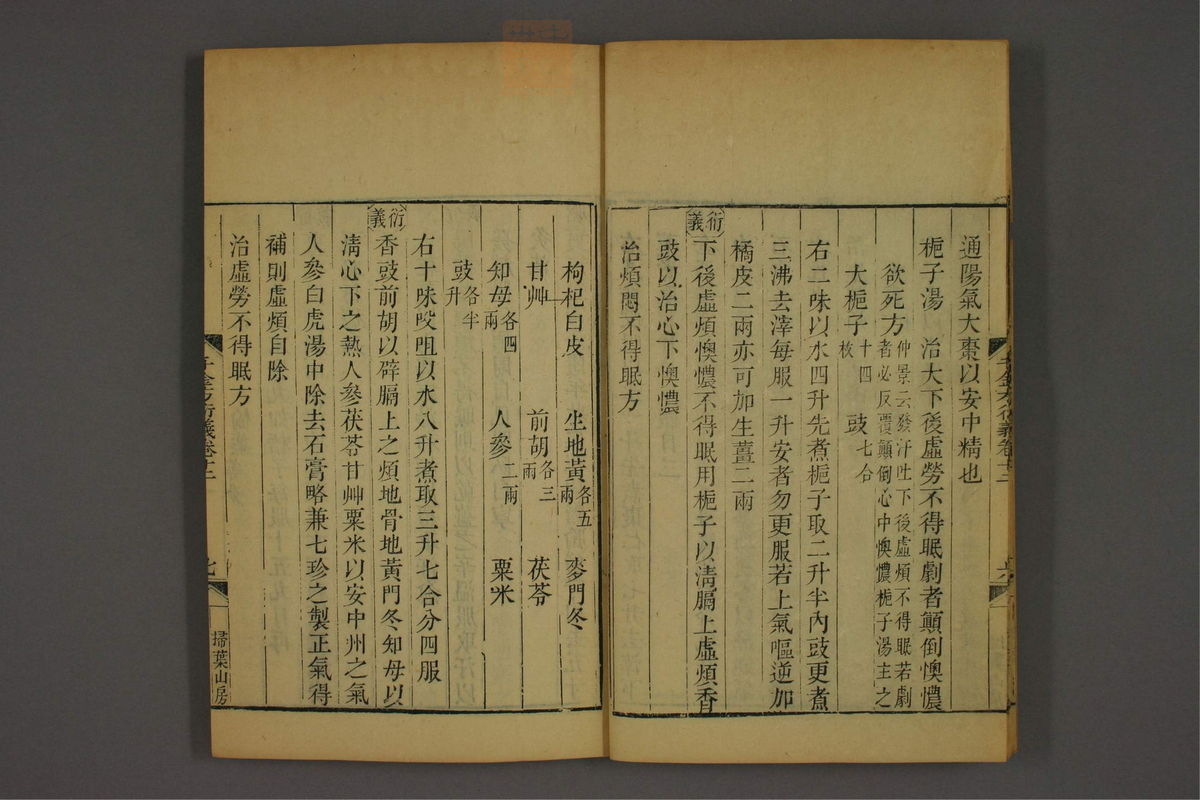 通陽氣大棗以安中精也
梔子湯 治大下後虛勞不得眠劇者顚倒懊憹
欲死方 仲景云發汗吐下後虛煩不得眠若劇
者必反覆顚倒心中懊憹梔子湯主之
大梔子十四枚 豉七合
右二味以水四升先煮梔子取二升半內豉更煮
三沸去滓每服一升安者勿更服若上氣嘔逆加
橘皮二兩亦可加生薑二兩
衍義
下後虛煩懊憹不得眠用梔子以淸膈上虛煩香
豉以治心下懊憹
治煩悶不得眠方
千金方衍義卷十二
枸杞白皮 生地黃各五兩 麥門冬
甘艸 前胡各三兩 茯苓
知母各四兩 人參二兩 粟米
豉各半升
右十味㕮咀以水八升煮取三升七合分四服
衍義
香豉前胡以辟膈上之煩地骨地黃門冬知母以
淸心下之熱人參茯苓甘艸粟米以安中州之氣
人參白虎湯中除去石膏略兼七珍之製正氣得
補則虛煩自除
治虛勞不得眠方
千金方衍義卷十二
七
掃葉山房